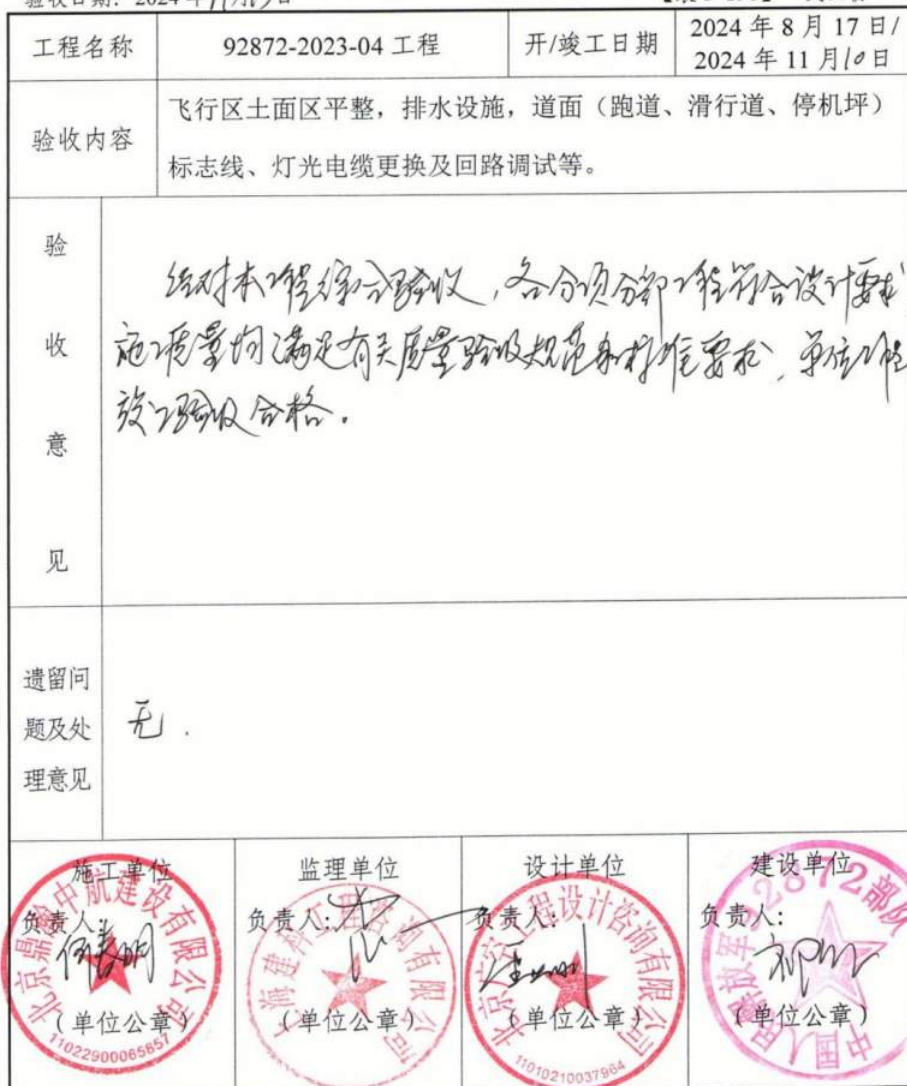 验收日期：2024年11月13日
工程名称 92872-2023-04 工程 开/竣工日期 2024 年 8 月 17 日/
2024 年 11 月10 日
验收内容
飞行区土面区平整，排水设施，道面（跑道、滑行道、停机坪）
标志线、灯光电缆更换及回路调试等。
验收意见
经对本工程综合验收，各分项分部工程符合设计要求
施工质量均满足有关质量验收规范和标准要求、单位工程
竣工验收合格。
遗留问
题及处
理意见
无.
施工单位 监理单位 设计单位 建设单位
负责人: 负责人: 负责人: 负责人:
(单位公章) (单位公章) (单位公章) (单位公章)
北京鼎瀚中航建设有限公司
11022900065857
上海建科工程咨询有限公司
工程设计咨询有限公司
11010210037964
中国人民解放军92872部队